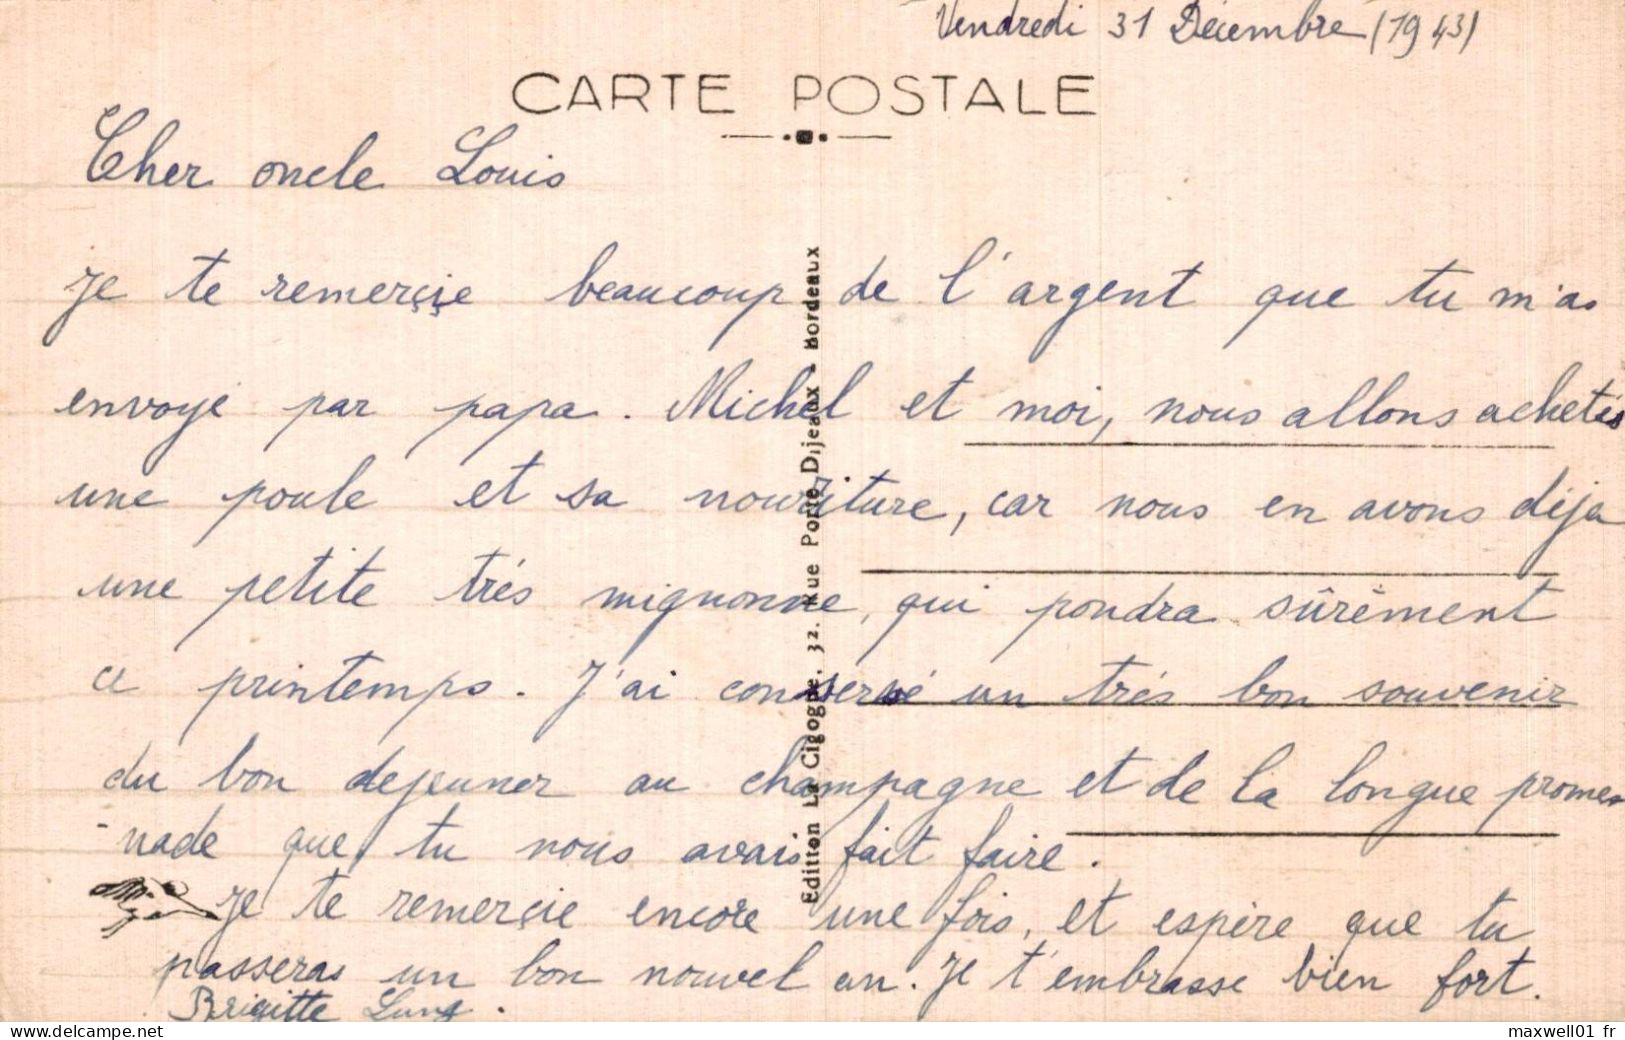 Vendredi 31 Décembre (1943)
CARTE POSTALE
Cher oncle Louis
Je te remerçie beaucoup de l'argent que tu m'as
envoyé par papa. Michel et moi, nous allons achetés
une poule et sa nourriture, car nous en avons déja
une petite trés mignonne, qui pondra sûrêment
ce printemps. J'ai conservé un trés bon souvenir
du bon dejeuner au champagne et de la longue prome
-nade que tu nous avais fait faire.
Je te remerçie encore une fois, et espère que tu
passeras un bon nouvel an. Je t'embrasse bien fort.
Brigitte Lung.
Edition La Cigogne, 32. Rue Porte Dijeaux - Bordeaux
www.delcampe.net
maxwell01 fr